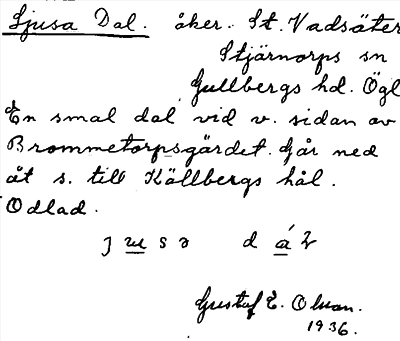 Ljusa Dal. åker. St. Vadsäter
Stjärnorps sn
Gullbergs hd. Ögl
En smal dal vid v. sidan av
Brommetorpsgärdet. Går ned
åt s. till Källbergs hål.
Odlad.
Gustaf E. Olson.
1936.